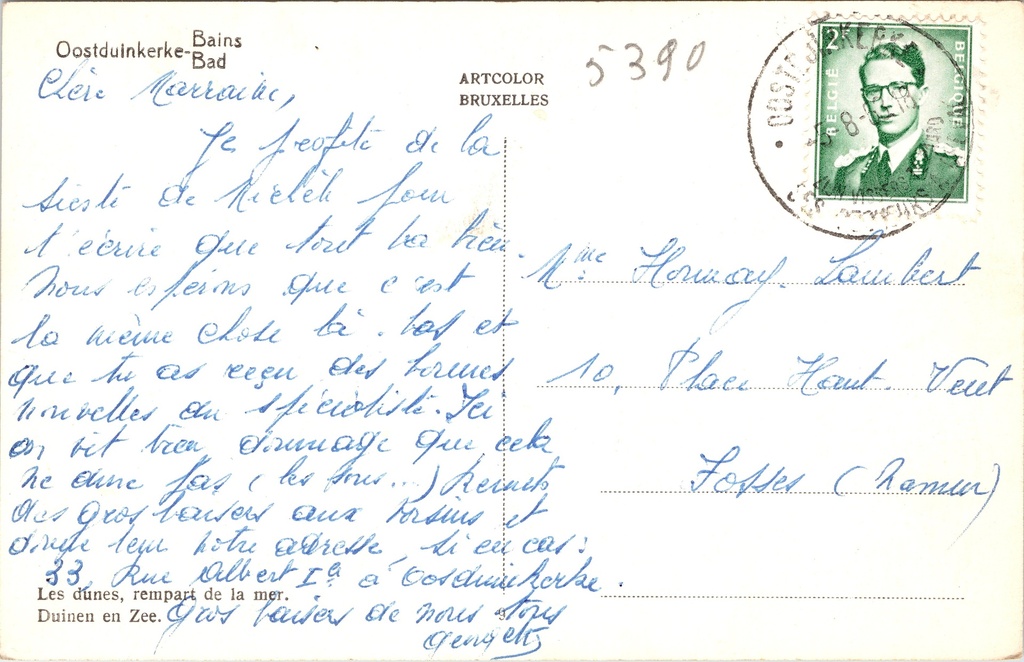 Oostduinkerke-Bains
Bad
ARTCOLOR
BRUXELLES
5390
2F
BELGIË
BELGIQUE
Chère Marraine,
Je profite de la
sieste de Michèle pour
t'écrire que tout va bien.
Nous espérons que c'est
la même chose là-bas et
que tu as reçu des bonnes
nouvelles du spécialiste. Ici
on vit bien dommage que cela
ne dure pas (les sous...) Remets
des gros baisers aux voisins et
donne leur notre adresse, si en cas:
33, Rue Albert Ier à Oostduinkerke.
Gros baisers de nous tous
Mme Hormay-Lambert
10, Place Haut-Vent
Fosses (Namur)
Les dunes, rempart de la mer.
Duinen en Zee.